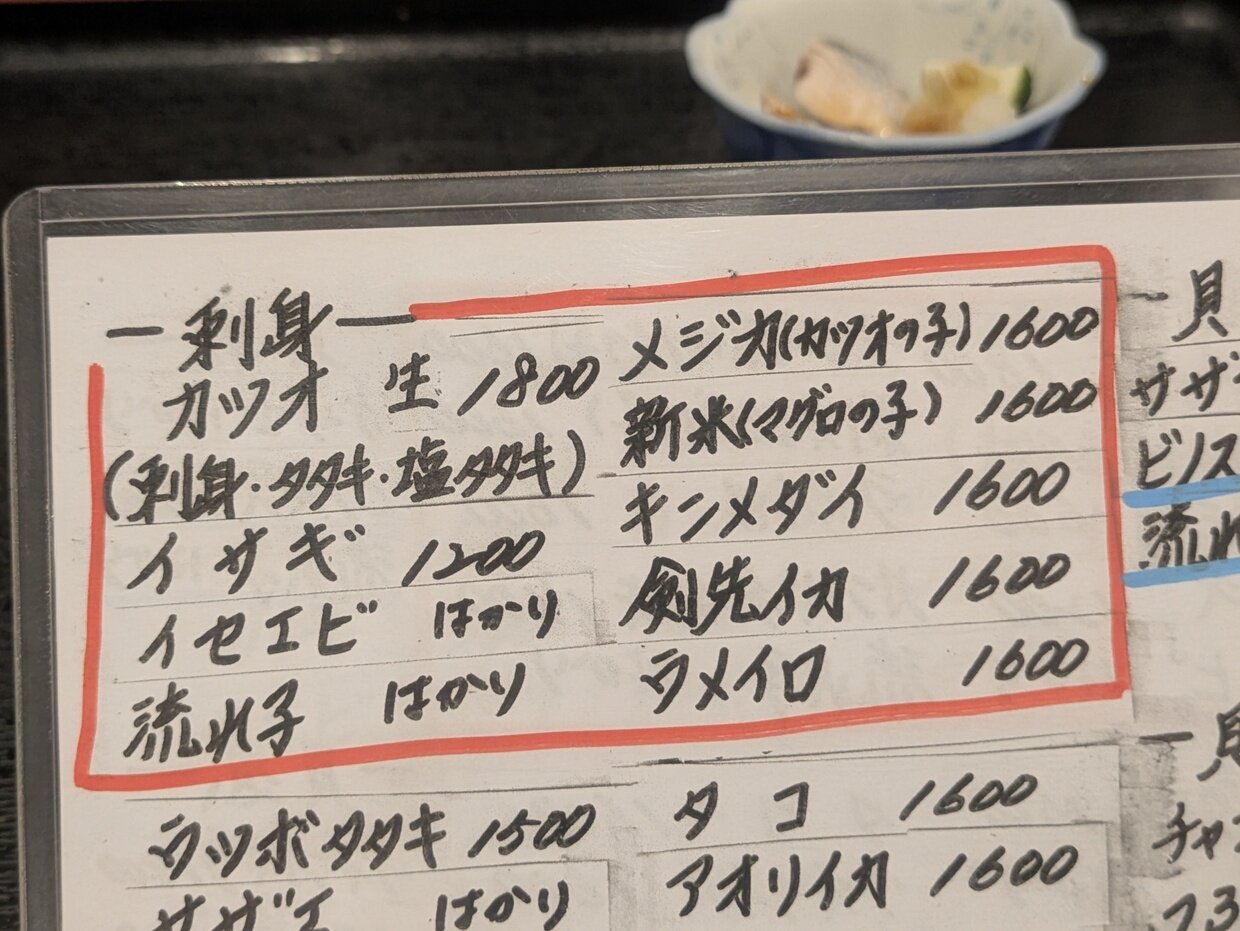 刺身
カツオ 生 1800
(刺身・タタキ・塩タタキ)
イサギ 1200
イセエビ はかり
流れ子 はかり
メジカ(カツオの子) 1600
新米(マグロの子) 1600
キンメダイ 1600
剣先イカ 1600
ウメイロ 1600
ウツボタタキ 1500
サザエ はかり
タコ 1600
アオリイカ 1600
貝
サザ
ビノス
流れ
チャン